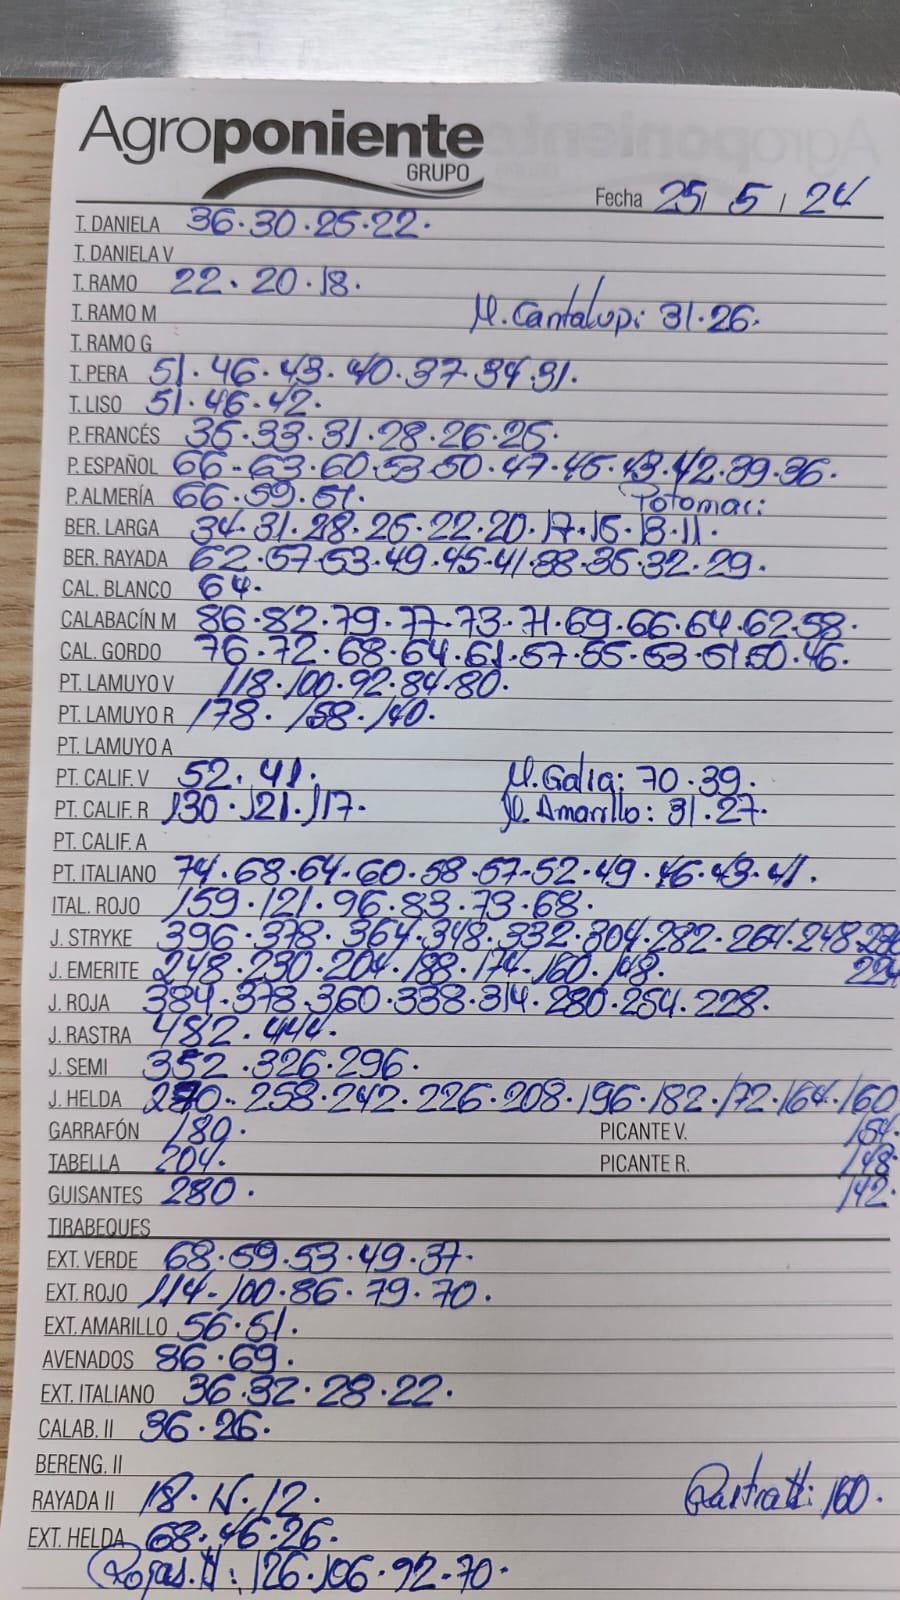 Agroponiente
GRUPO
Fecha 25 / 5 / 24
T. DANIELA 36 · 30 · 25 · 22 ·
T. DANIELA V
T. RAMO 22 · 20 · 18 ·
T. RAMO M M. Cantalup: 31 · 26 ·
T. RAMO G
T. PERA 51 · 46 · 43 · 40 · 37 · 34 · 31 ·
T. LISO 51 · 46 · 42 ·
P. FRANCÉS 35 · 33 · 31 · 28 · 26 · 25 ·
P. ESPAÑOL 66 - 63 · 60 · 53 · 50 · 47 · 45 · 43 · 42 · 39 · 36 ·
P. ALMERÍA 66 · 59 · 51 · Potomac:
BER. LARGA 34 · 31 · 28 · 25 · 22 · 20 · 17 · 15 · 13 · 11 ·
BER. RAYADA 62 · 57 · 53 · 49 · 45 · 41 · 38 · 35 · 32 · 29 ·
CAL. BLANCO 64 ·
CALABACÍN M 86 · 82 · 79 · 77 · 73 · 71 · 69 · 66 · 64 · 62 · 58 ·
CAL. GORDO 76 · 72 · 68 · 64 · 61 · 57 · 55 · 53 · 51 · 50 · 46 ·
PT. LAMUYO V 118 · 100 · 92 · 84 · 80 ·
PT. LAMUYO R 178 · 158 · 140 ·
PT. LAMUYO A
PT. CALIF. V 52 · 41 · M. Galia: 70 · 39 ·
PT. CALIF. R 130 · 121 · 117 · M. Amarillo: 31 · 27 ·
PT. CALIF. A
PT. ITALIANO 74 · 68 · 64 · 60 · 58 · 57 · 52 · 49 · 46 · 43 · 41 ·
ITAL. ROJO 159 · 121 · 96 · 83 · 73 · 68 ·
J. STRYKE 396 · 378 · 364 · 348 · 332 · 304 · 282 · 264 · 248 ·
J. EMERITE 248 · 230 · 204 · 188 · 174 · 160 · 148 · 224
J. ROJA 384 · 378 · 360 · 338 · 314 · 280 · 254 · 228 ·
J. RASTRA 482 · 444 ·
J. SEMI 352 · 326 · 296 ·
J. HELDA 270 · 258 · 242 · 226 · 208 · 196 · 182 · 172 · 164 · 160
GARRAFÓN 180 · PICANTE V. 154 ·
TABELLA 204 · PICANTE R. 148 ·
GUISANTES 280 · 142 ·
TIRABEQUES
EXT. VERDE 68 · 59 · 53 · 49 · 37 ·
EXT. ROJO 114 - 100 · 86 · 79 · 70 ·
EXT. AMARILLO 56 · 51 ·
AVENADOS 86 · 69 ·
EXT. ITALIANO 36 · 32 · 28 · 22 ·
CALAB. II 36 · 26 ·
BERENG. II
RAYADA II 18 · 14 · 12 · Rastra II: 160 ·
EXT. HELDA 68 · 46 · 26 ·
Rojas. II: 126 · 106 · 92 · 70 ·